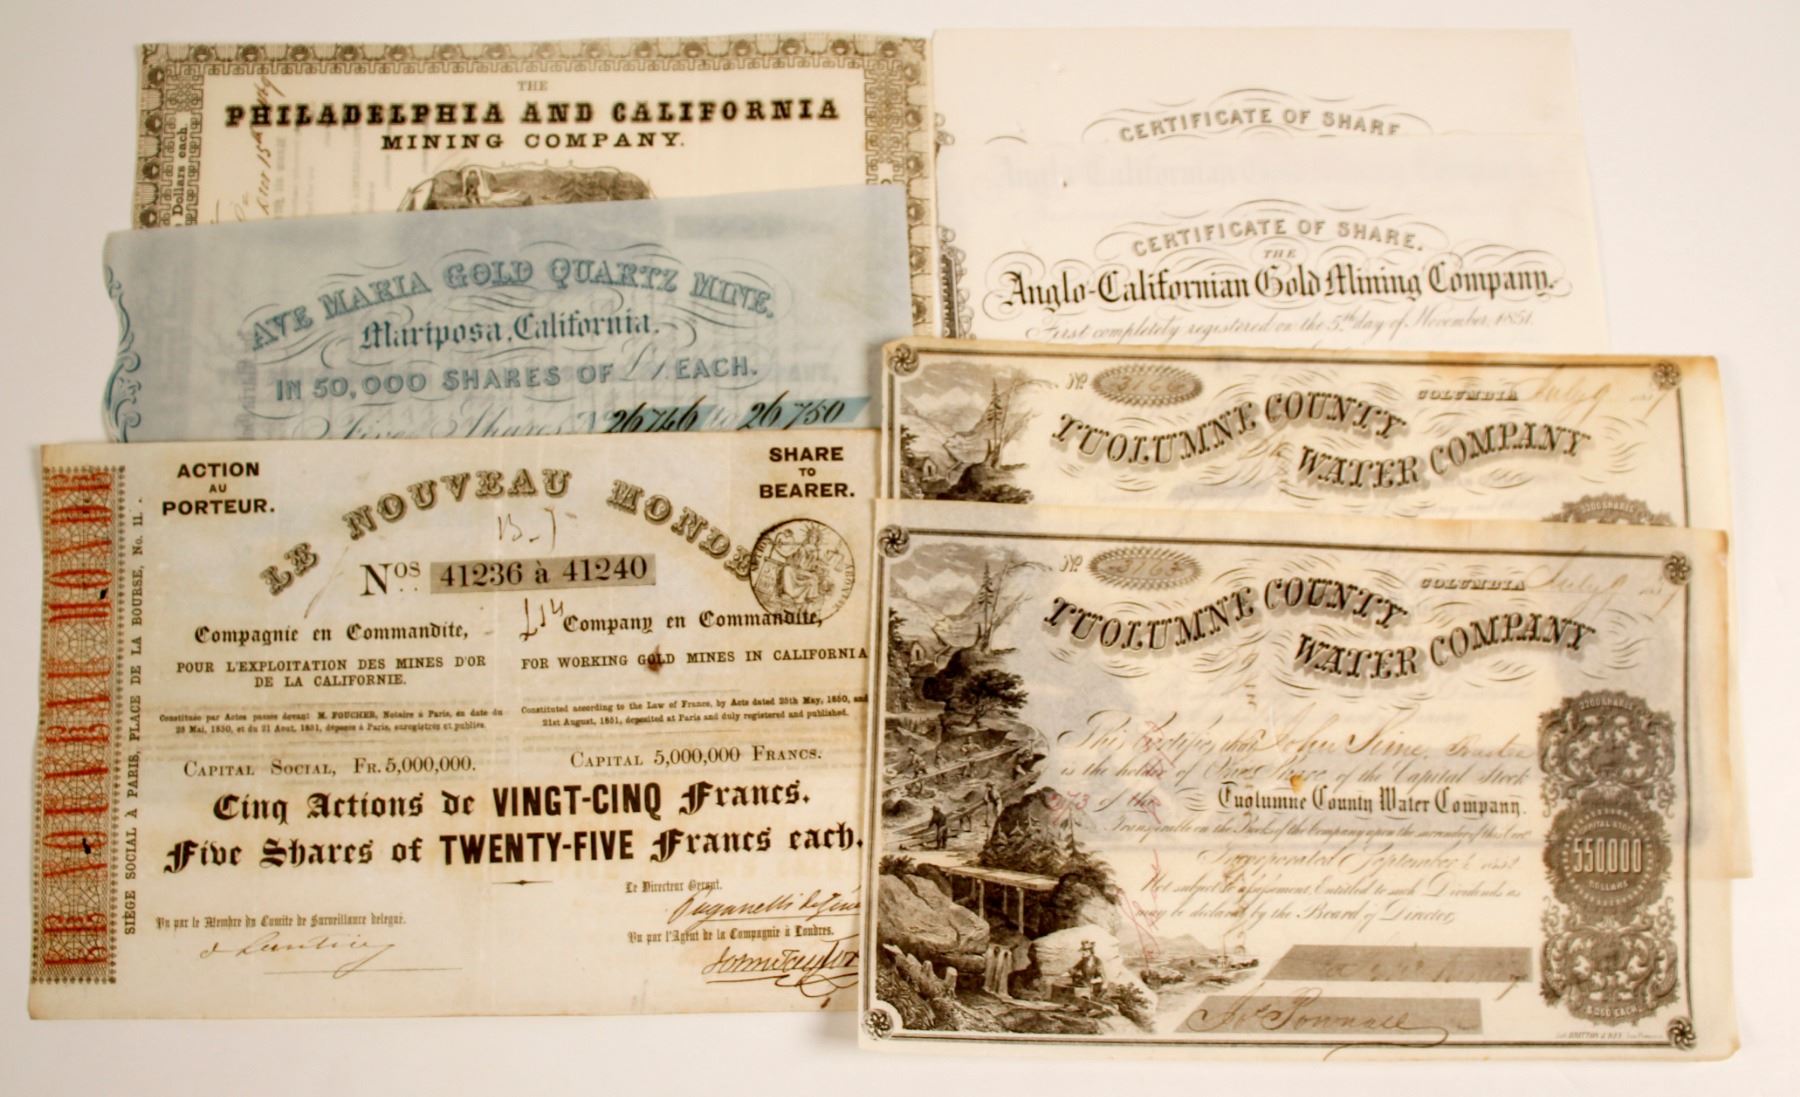 THE
PHILADELPHIA AND CALIFORNIA
MINING COMPANY.
Dollars each.
CERTIFICATE OF SHARE
Anglo-Californian
CERTIFICATE OF SHARE.
THE
Anglo-Californian Gold Mining Company.
First completely registered on the 5th day of November, 1851.
AVE MARIA GOLD QUARTZ MINE.
Mariposa, California.
IN 50,000 SHARES OF £1 EACH.
Five Shares No 26746 to 26750
No 3166
COLUMBIA July 9
TUOLUMNE COUNTY
WATER COMPANY
5500 SHARES
LE NOUVEAU MONDE
SIÈGE SOCIAL À PARIS, PLACE DE LA BOURSE, No. 11.
ACTION
AU
PORTEUR.
SHARE
TO
BEARER.
LE NOUVEAU MONDE
Nos. 41236 à 41240
Compagnie en Commandite,
POUR L'EXPLOITATION DES MINES D'OR
DE LA CALIFORNIE.
Constituée par Actes passés devant M. FOUCHER, Notaire à Paris, en date du
25 Mai, 1850, et du 21 Aout, 1851, déposés à Paris, enregistrés et publiés.
CAPITAL SOCIAL, FR. 5,000,000.
Company en Commandite,
FOR WORKING GOLD MINES IN CALIFORNIA
Constituted according to the Law of France, by Acts dated 25th May, 1850, and
21st August, 1851, deposited at Paris and duly registered and published.
CAPITAL 5,000,000 FRANCS.
Cinq Actions de VINGT-CINQ Francs.
Five Shares of TWENTY-FIVE Francs each.
Le Directeur Gérant.
Vu par le Membre du Comite de Surveillance délégué.
Vu par l'Agent de la Compagnie à Londres.
No 3165
COLUMBIA July 9
TUOLUMNE COUNTY
WATER COMPANY
This Certifies that John Sime, Trustee
is the holder of One Share of the Capital Stock
of the Tuolumne County Water Company.
Transferable on the Books of the Company upon the surrender of this Cert
Incorporated September 1852
Not subject to assessment. Entitled to such Dividends as
may be declared by the Board of Directors
CAPITAL STOCK
550,000
DOLLARS
Jos Pownall
Lith. BRITTON & REY San Francisco